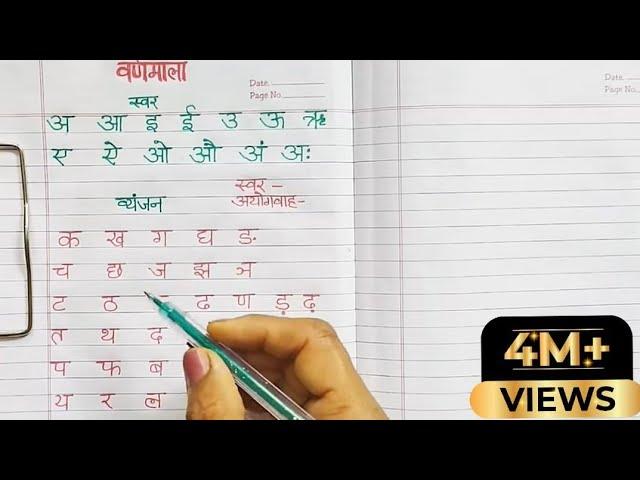 वर्णमाला
Date.
Page No.
Date.
Page No.
स्वर
अ आ इ ई उ ऊ ऋ
ए ऐ ओ औ अं अः
स्वर -
व्यंजन अयोगवाह-
क ख ग घ ङ
च छ ज झ ञ
ट ठ ढ ण ड़ ढ़
त थ द
प फ ब
य र ल
4M+
VIEWS